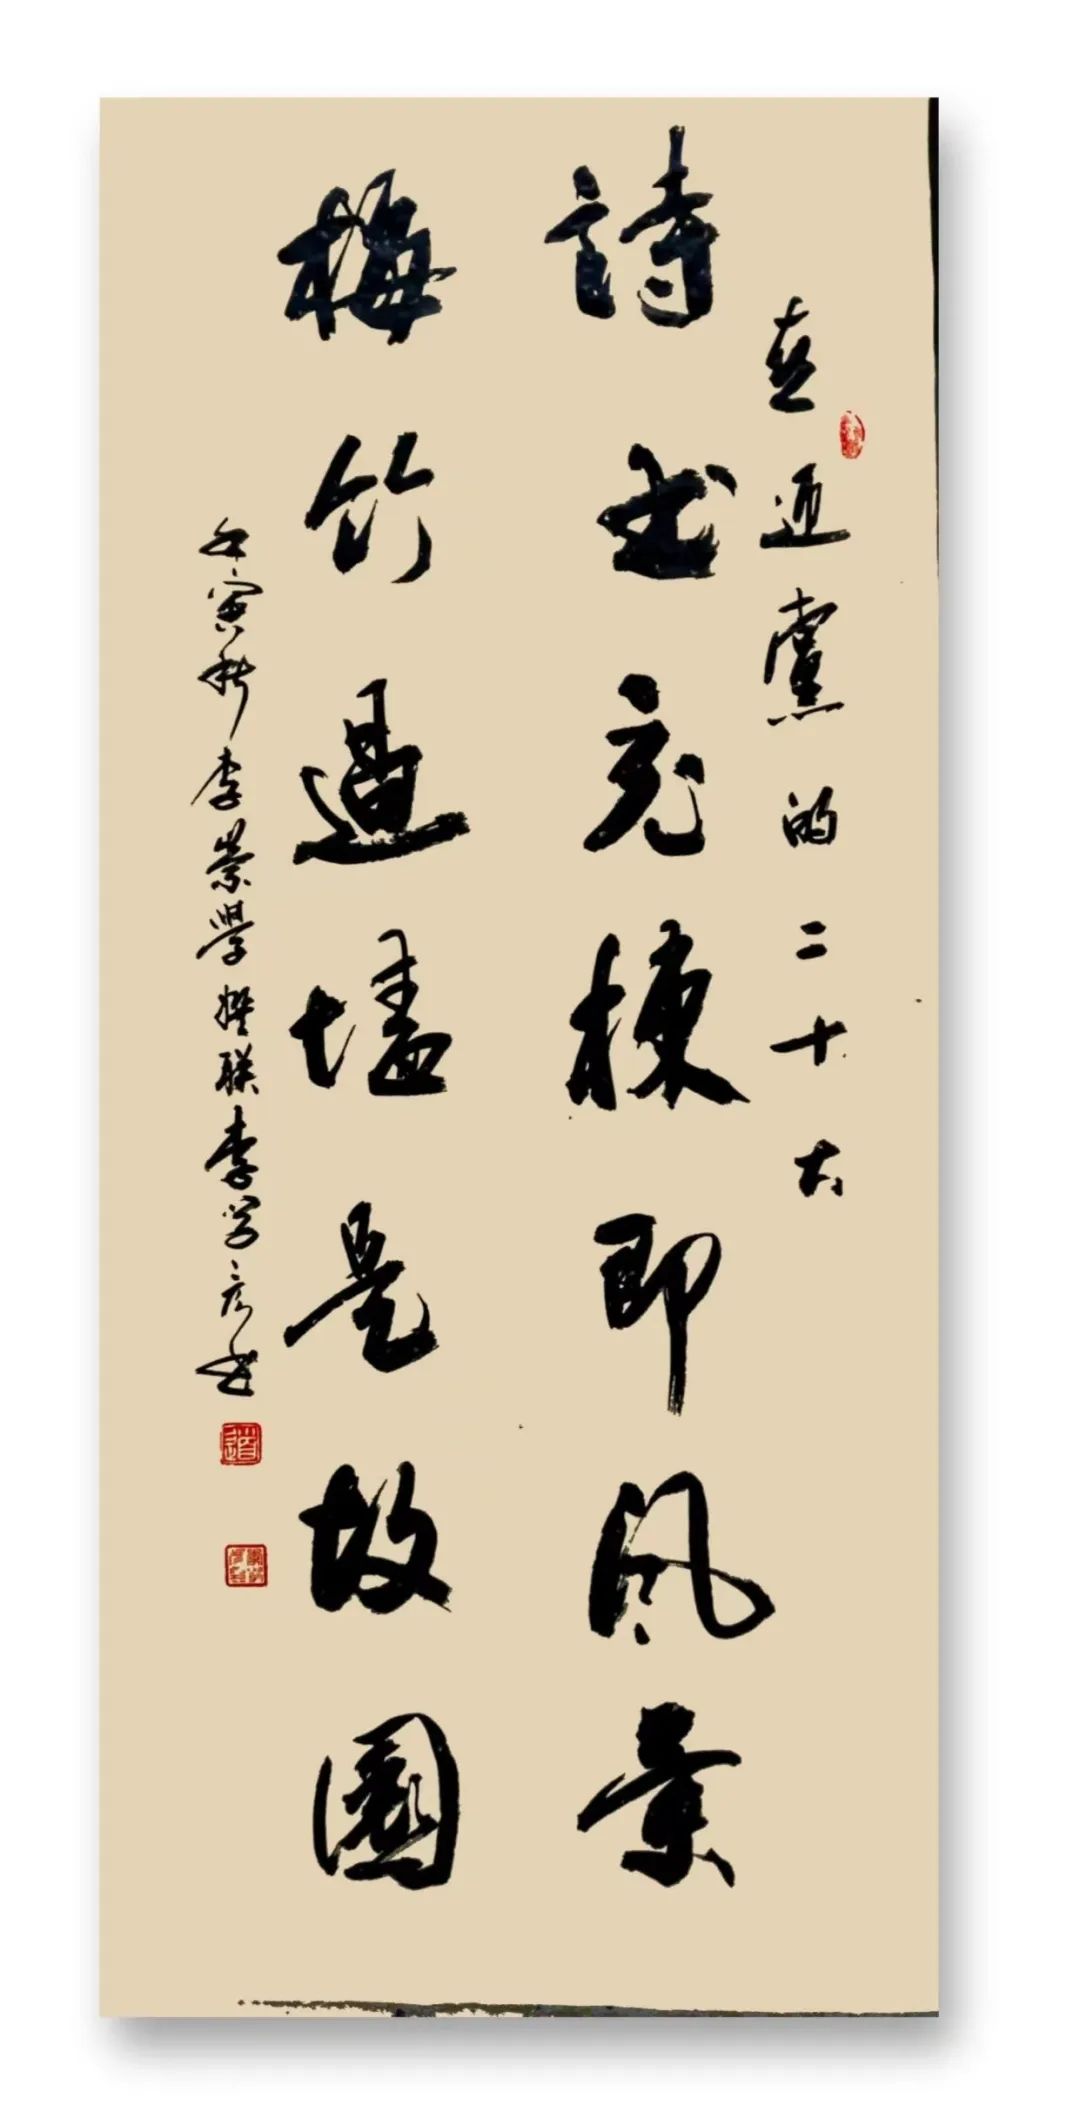 喜迎黨的二十大
詩书充棟即风景
梅竹過墙是故園
壬寅秋李崇學撰联李学彦书